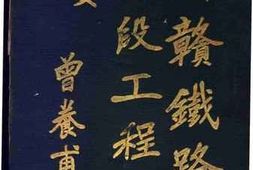 贛鐵路
段工程
曾養甫